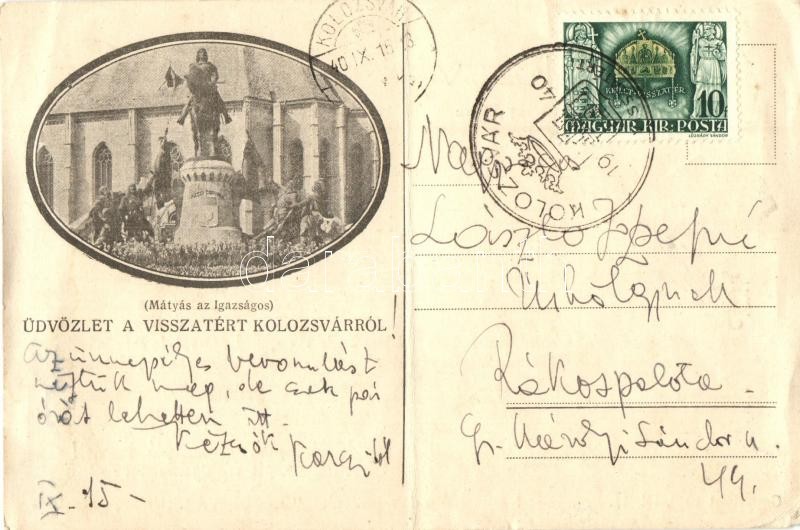 KOLOZSVÁR
40 IX. 16
KELET VISSZATÉR
10
MAGYAR KIR. POSTA
KOLOZSVÁR
1940
(Mátyás az Igazságos)
ÜDVÖZLET A VISSZATÉRT KOLOZSVÁRRÓL!
Az ünnepélyes bevonulást
néztük meg, de csak pár
órát lehettem itt.
IX. 15-
Nagys.
László Józsefné
Úrhölgynek
Rákospalota
Gr. Károlyi Sándor u.